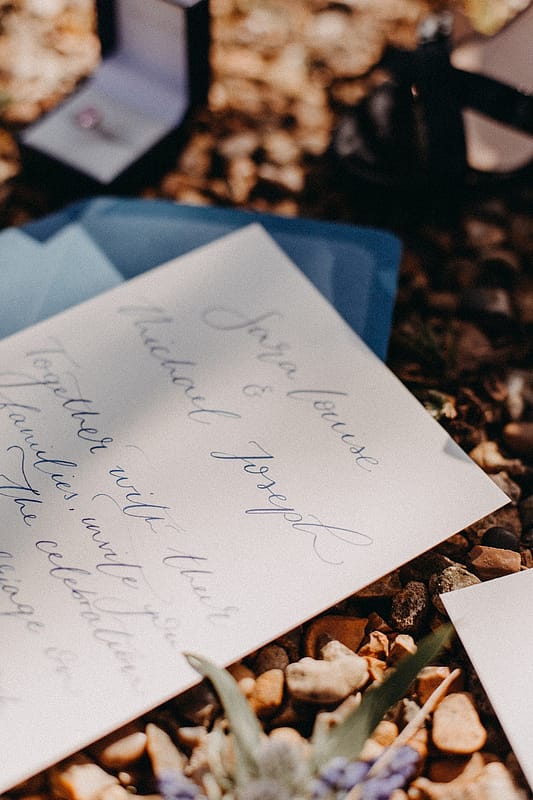 Sara Louise
&
Michael Joseph
Together with their
families, invite you
The celebration